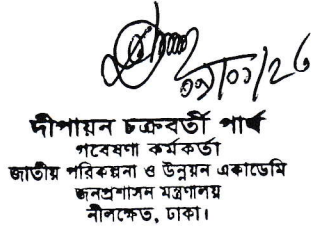 ০১/০১/২৬
দীপায়ন চক্রবর্তী পার্থ
গবেষণা কর্মকর্তা
জাতীয় পরিকল্পনা ও উন্নয়ন একাডেমি
জনপ্রশাসন মন্ত্রণালয়
নীলক্ষেত, ঢাকা।